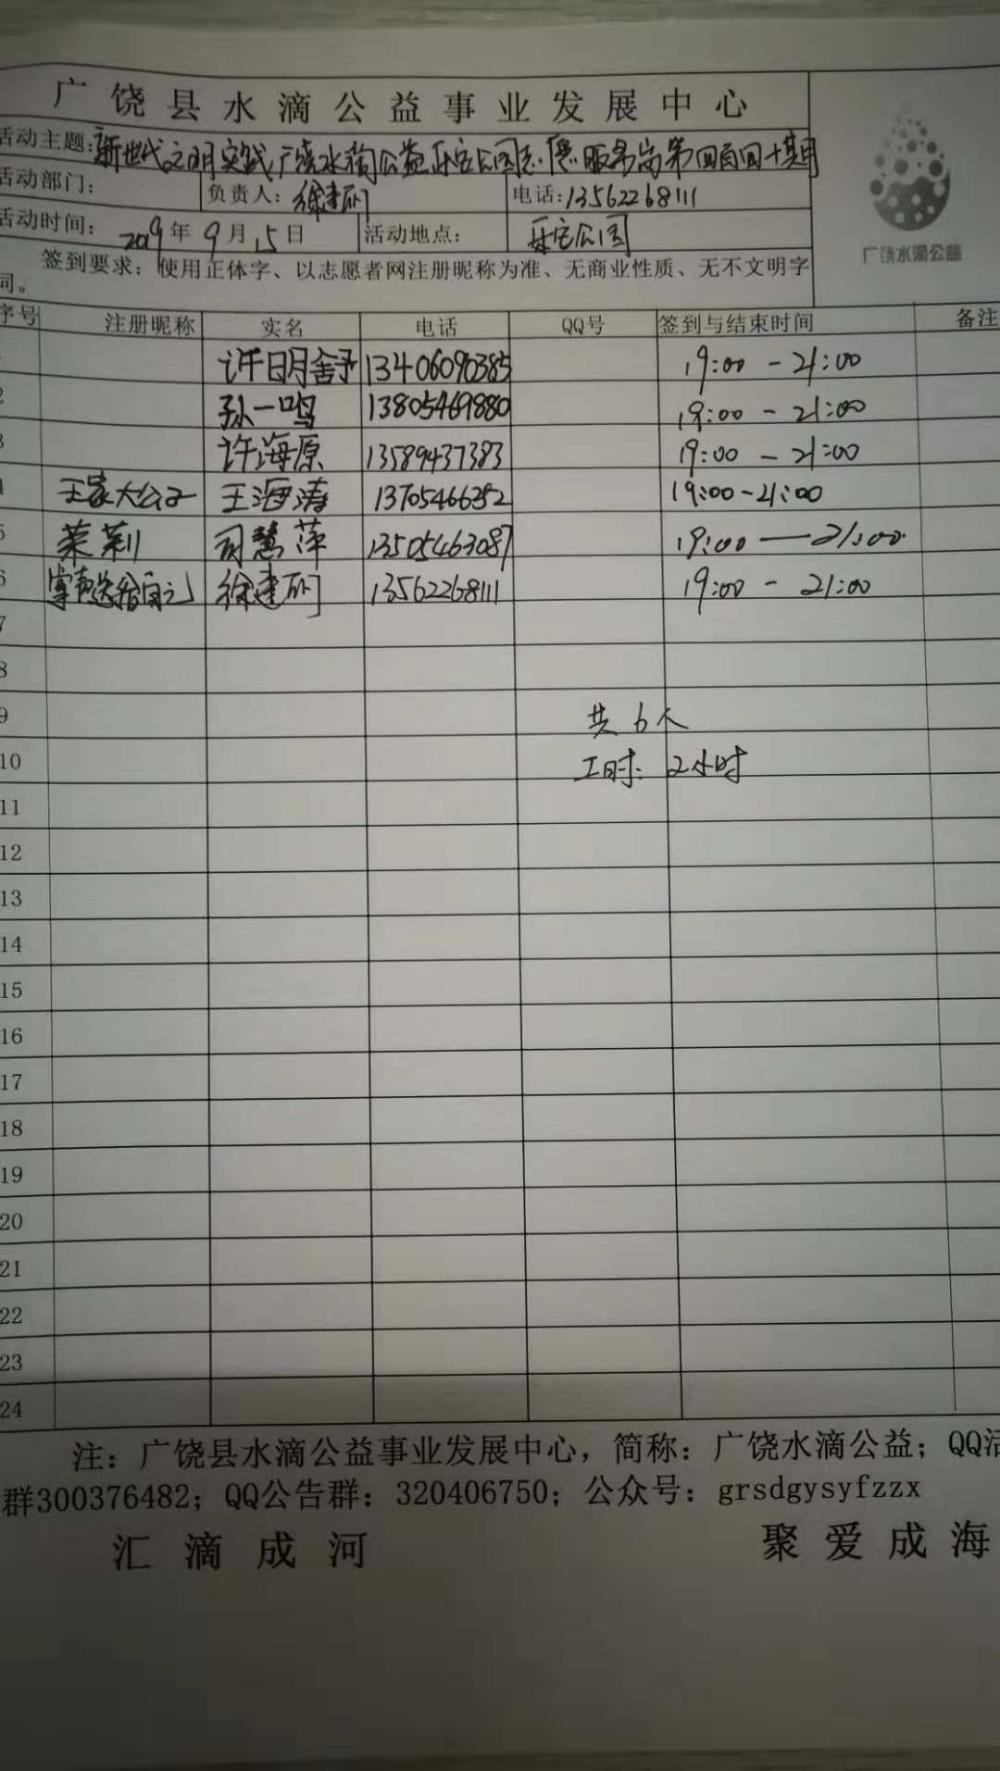 广饶县水滴公益事业发展中心
活动主题：新世代文明实践广饶水滴公益乐安公园志愿服务岗第四百四十期
活动部门： 负责人：徐建 电话：13562268111
活动时间： 2019年9月15日 活动地点： 乐安公园
签到要求：使用正体字、以志愿者网注册昵称为准、无商业性质、无不文明字
词。
广饶水滴公益
序号 注册昵称 实名 电话 QQ号 签到与结束时间 备注
许明舒 13406090385 19:00-21:00
2 孙一鸣 13805469880 19:00-21:00
3 许海原 13589437383 19:00-21:00
王家大公子 王海涛 13705466352 19:00-21:00
5 茉莉 司慧萍 13505463087 19:00—21:00
6 掌声送给自己 徐建 13562268111 19:00-21:00
7
8
9 共6人
10 工时：2小时
11
12
13
14
15
16
17
18
19
20
21
22
23
24
注：广饶县水滴公益事业发展中心，简称：广饶水滴公益；QQ活
群300376482；QQ公告群：320406750；公众号：grsdgysyfzzx
汇滴成河 聚爱成海